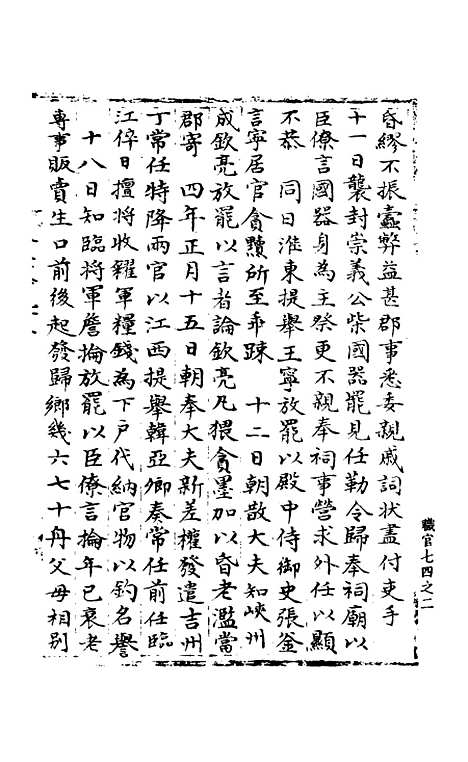 昏繆不振蠹弊益甚郡事悉委親戚詞狀盡付吏手
十一日襲封崇義公柴國器罷見任勒令歸奉祠廟以
臣僚言國器身為主祭更不親奉祠事營求外任以顯
不恭　同日淮東提舉王寧放罷以殿中侍御史張釜
言寧居官貪黷所至乖踈　十二日朝散大夫知峽州
成欽亮放罷以言者論欽亮凡猥貪墨加以昏老濫當
郡寄　四年正月十五日朝奉大夫新差權發遣吉州
丁常任特降兩官以江西提舉韓亞卿奏常任前任臨
江倅日擅將收糴軍糧錢為下戶代納官物以釣名譽
十八日知臨將軍詹掄放罷以臣僚言掄年已衰老
專事販賣生口前後起發歸鄉幾六七十舟父母相別
職官七四之二